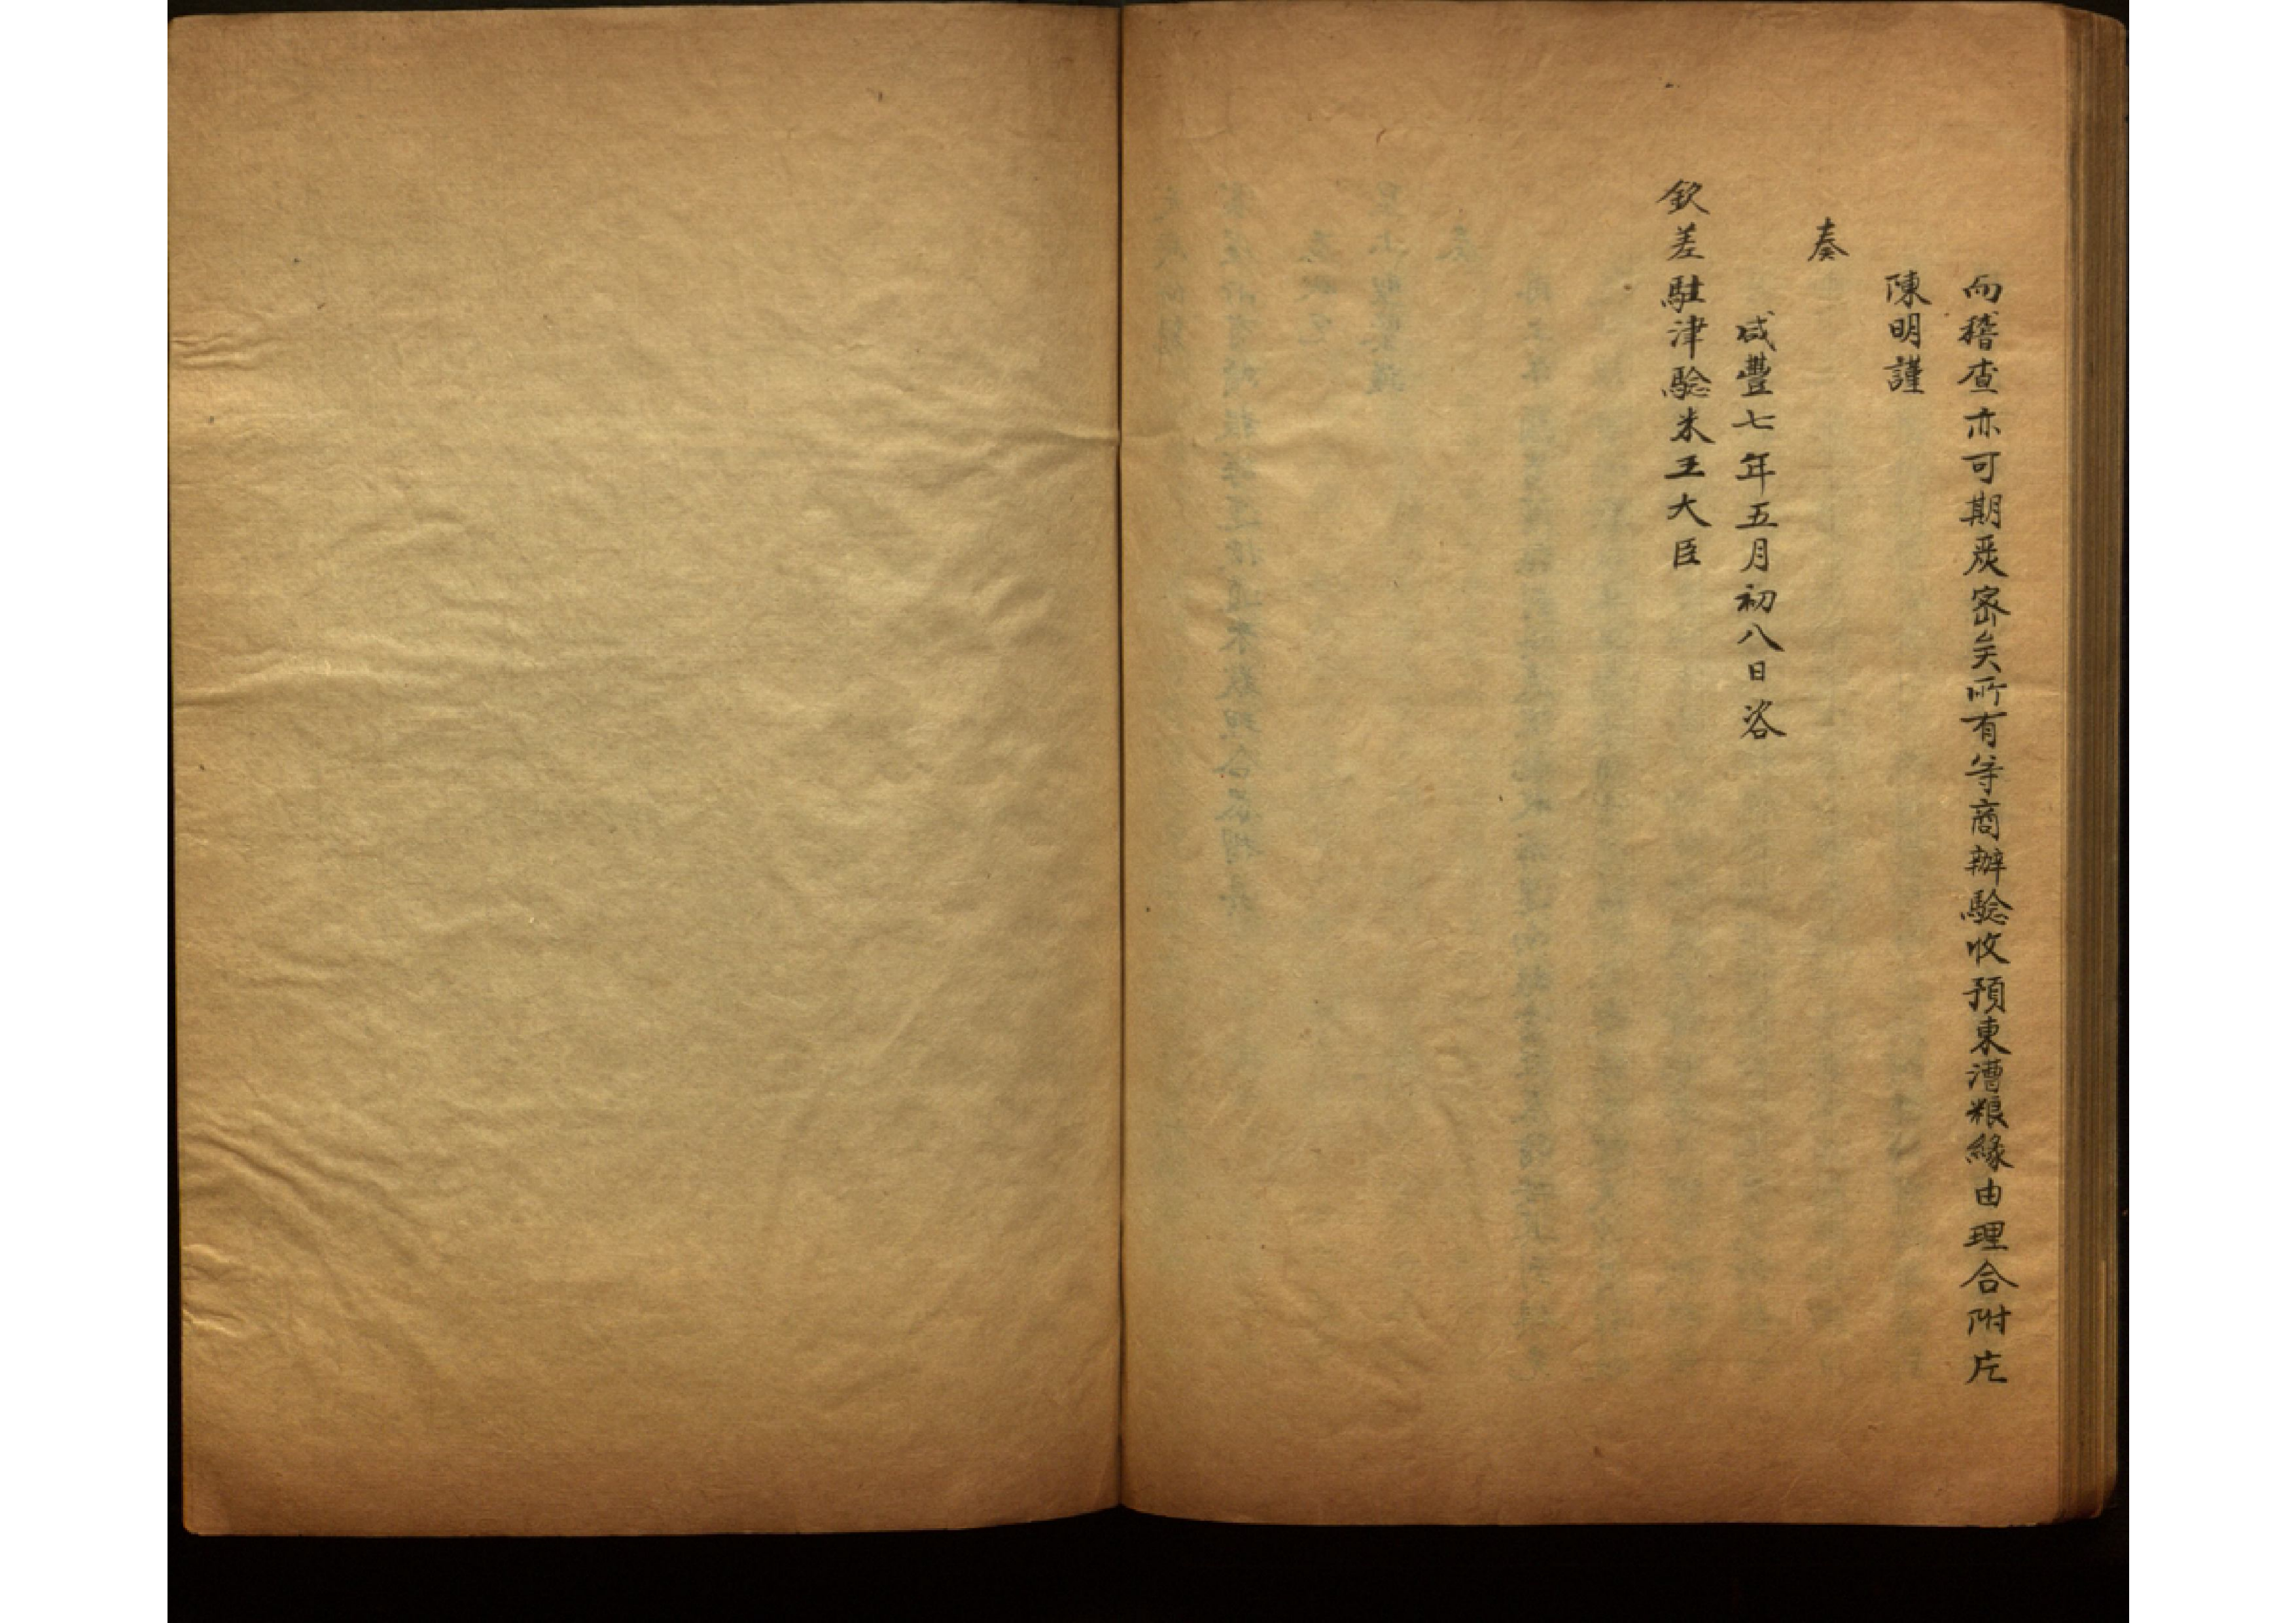 而稽查亦可期嚴密矣所有等商辦驗收預東漕粮緣由理合附片
陳明謹
奏
咸豐七年五月初八日咨
欽差駐津驗米王大臣